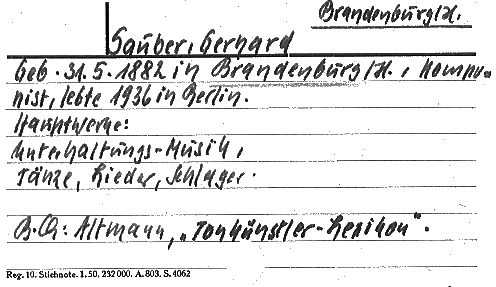 Brandenburg/H.
Sauber, Gerhard
Geb. 31.5.1882 in Brandenburg/H., Kompo=
nist, lebte 1936 in Berlin.
Hauptwerke:
Unterhaltungs-Musik,
Tänze, Lieder, Schlager.
B.Qu: Altmann, „Tonkünstler-Lexikon".
Reg. 10. Stichnote. 1. 50. 232000. A. 803. S. 4062